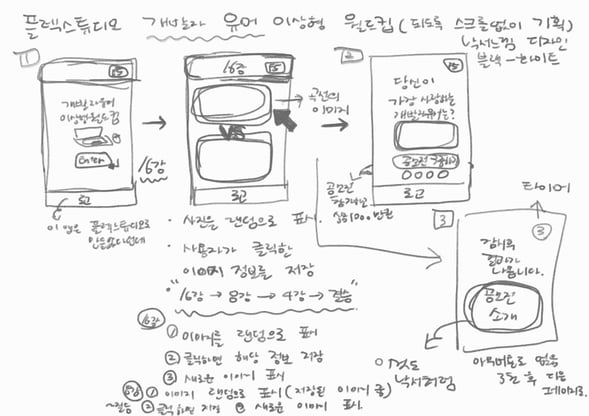 플렉스튜디오 개발자 유머 이상형 월드컵 (되도록 스크롤없이 기획)
낙서느낌 디자인
블랙-화이트
1
개발자유머
이상형월드컵
Enter
로고
이 앱은 플렉스튜디오로
만들었다인데
16강
16강
VS
로고
곡선의
이미지
2
당신이
가장 사랑하는
개발자유머는?
공모전
로고
공모전
상금 1000만원
· 사진을 랜덤으로 표시.
· 사용자가 클릭한
이미지 정보를 저장
"16강 → 8강 → 4강 → 결승"
16강
① 이미지를 랜덤으로 표시
② 클릭하면 해당 정보 저장
③ 새로운 이미지 표시
8강
~결승
① 이미지 랜덤으로 표시 (저장된 이미지 중)
② 클릭하면 저장 ③ 새로운 이미지 표시.
타이머
3
3
잠시후
결과가
나옵니다.
공모전
소개
이것도
낙서처럼
아무버튼도 없음
3초 후 다음
페이지로.